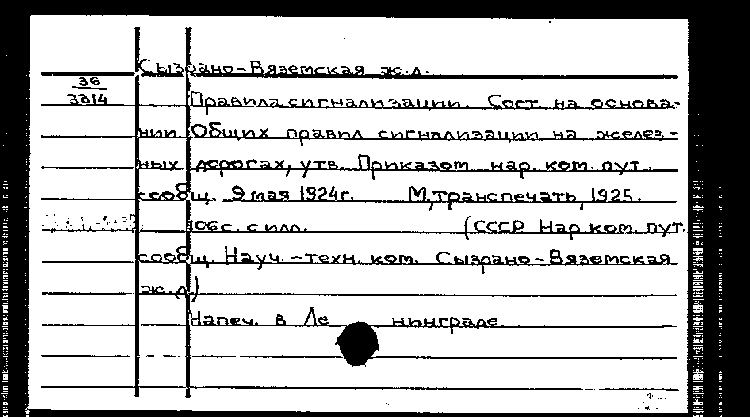 Сызрано-Вяземская ж.д.
36
3814
Правила сигнализации. Сост. на основа-
нии Общих правил сигнализации на желез-
ных дорогах, утв. Приказом нар. ком. пут.
сообщ. 9 мая 1924г. М, транспечать, 1925.
106с. с илл. (СССР Нар. ком. пут.
сообщ. Науч.-техн. ком. Сызрано-Вяземская
ж.д.)
Напеч. в Ле нинграде.